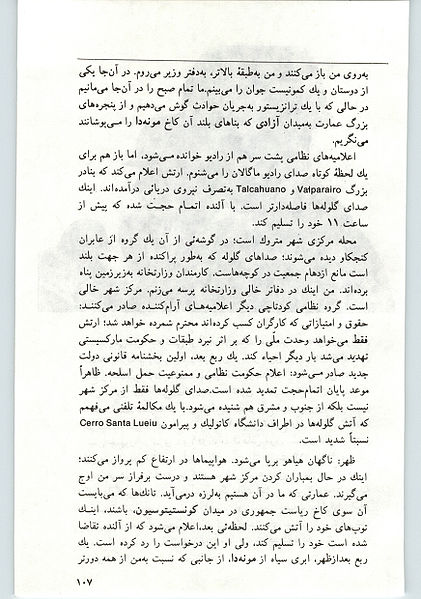 به‌روی من باز می‌کنند و من به‌طبقهٔ بالاتر، به‌دفتر وزیر می‌روم. در آن‌جا یکی
از دوستان و یك کمونیست جوان را می‌بینم.ما تمام صبح را در آن‌جا می‌مانیم
در حالی که با یك ترانزیستور به‌جریان حوادث گوش می‌دهیم و از پنجره‌های
بزرگ عمارت به‌میدان آزادی که بناهای بلند آن کاخ مونه‌دا را مـی‌پوشانند
می‌نگریم.
اعلامیه‌های نظامی پشت سر هم از رادیو خوانده مـی‌شود، اما باز هم برای
یك لحظهٔ کوتاه صدای رادیو ماگالان را می‌شنوم. ارتش اعلام می‌کند که بنادر
بزرگ Valparairo و Talcahuano به‌تصرف نیروی دریائی درآمده‌اند. اینك
صدای گلوله‌ها فاصله‌دارتر است. با آلنده اتمـام حجـت شده که پیش از
ساعت ۱۱ خود را تسلیم کند.
محله مرکزی شهر متروك است؛ در گوشه‌ئی از آن یك گروه از عابران
کنجکاو دیده می‌شوند؛ صداهای گلوله که به‌طور پراکنده از هر جهت بلند
است مانع ازدهام جمعیت در کوچه‌هاست. کارمندان وزارتخانه به‌زیرزمین پناه
برده‌اند. من اینك در دفاتر خالی وزارتخانه پرسه می‌زنم. مرکز شهر خالی
است. گروه نظامی کودتاچی دیگر اعلامیه‌های آرام‌کننـده صادر می‌کننـد:
حقوق و امتیازاتی که کارگران کسب کرده‌اند محترم شمرده خواهد شد؛ ارتش
فقط می‌خواهد وحدت ملّی را که بر اثر نبرد طبقات و حکومت مارکسیستی
تهدید می‌شد بار دیگر احیاء کند. یك ربع بعد، اولین بخشنامه قانونی دولت
جدید صادر می‌شود: اعلام حکومت نظامی و ممنوعیت حمل اسلحه. ظاهراً
موعد پایان اتمام‌حجت تمدید شده است.صدای گلوله‌ها فقط از مرکز شهر
نیست بلکه از جنوب و مشرق هم شنیده می‌شود.با یك مکالمهٔ تلفنی می‌فهمم
که آتش گلوله‌ها در اطراف دانشگاه کاتولیك و پیرامون Cerro Santa Lueiu
نسبتاً شدید است.
ظهر: ناگهان هیاهو برپا می‌شود. هواپیماها در ارتفاع کم پرواز می‌کنند؛
اینك در حال بمباران کردن مرکز شهر هستند و درست برفراز سر من اوج
می‌گیرند. عمارتی که ما در آن هستیم به‌لرزه درمی‌آید. تانك‌ها که می‌بایست
آن سوی کاخ ریاست جمهوری در میدان کونستیتوسیون، باشند، اینـك
توپ‌های خود را آتش می‌کنند. لحظه‌ئی بعد،اعلام می‌شود که از آلنده تقاضا
شده است خود را تسلیم کند، ولی او این درخواست را رد کرده است. یك
ربع بعدازظهر، ابری سیاه از مونه‌دا، از جانبی که نسبت به‌من از همه دورتر
۱۰۷